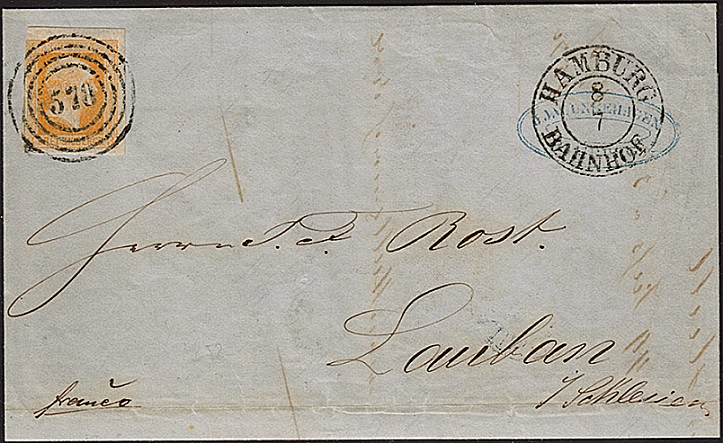 570
HAMBURG
8
7
BAHNHOF
Herrn J. F. Rost.
Lauban
i/Schlesien
franco